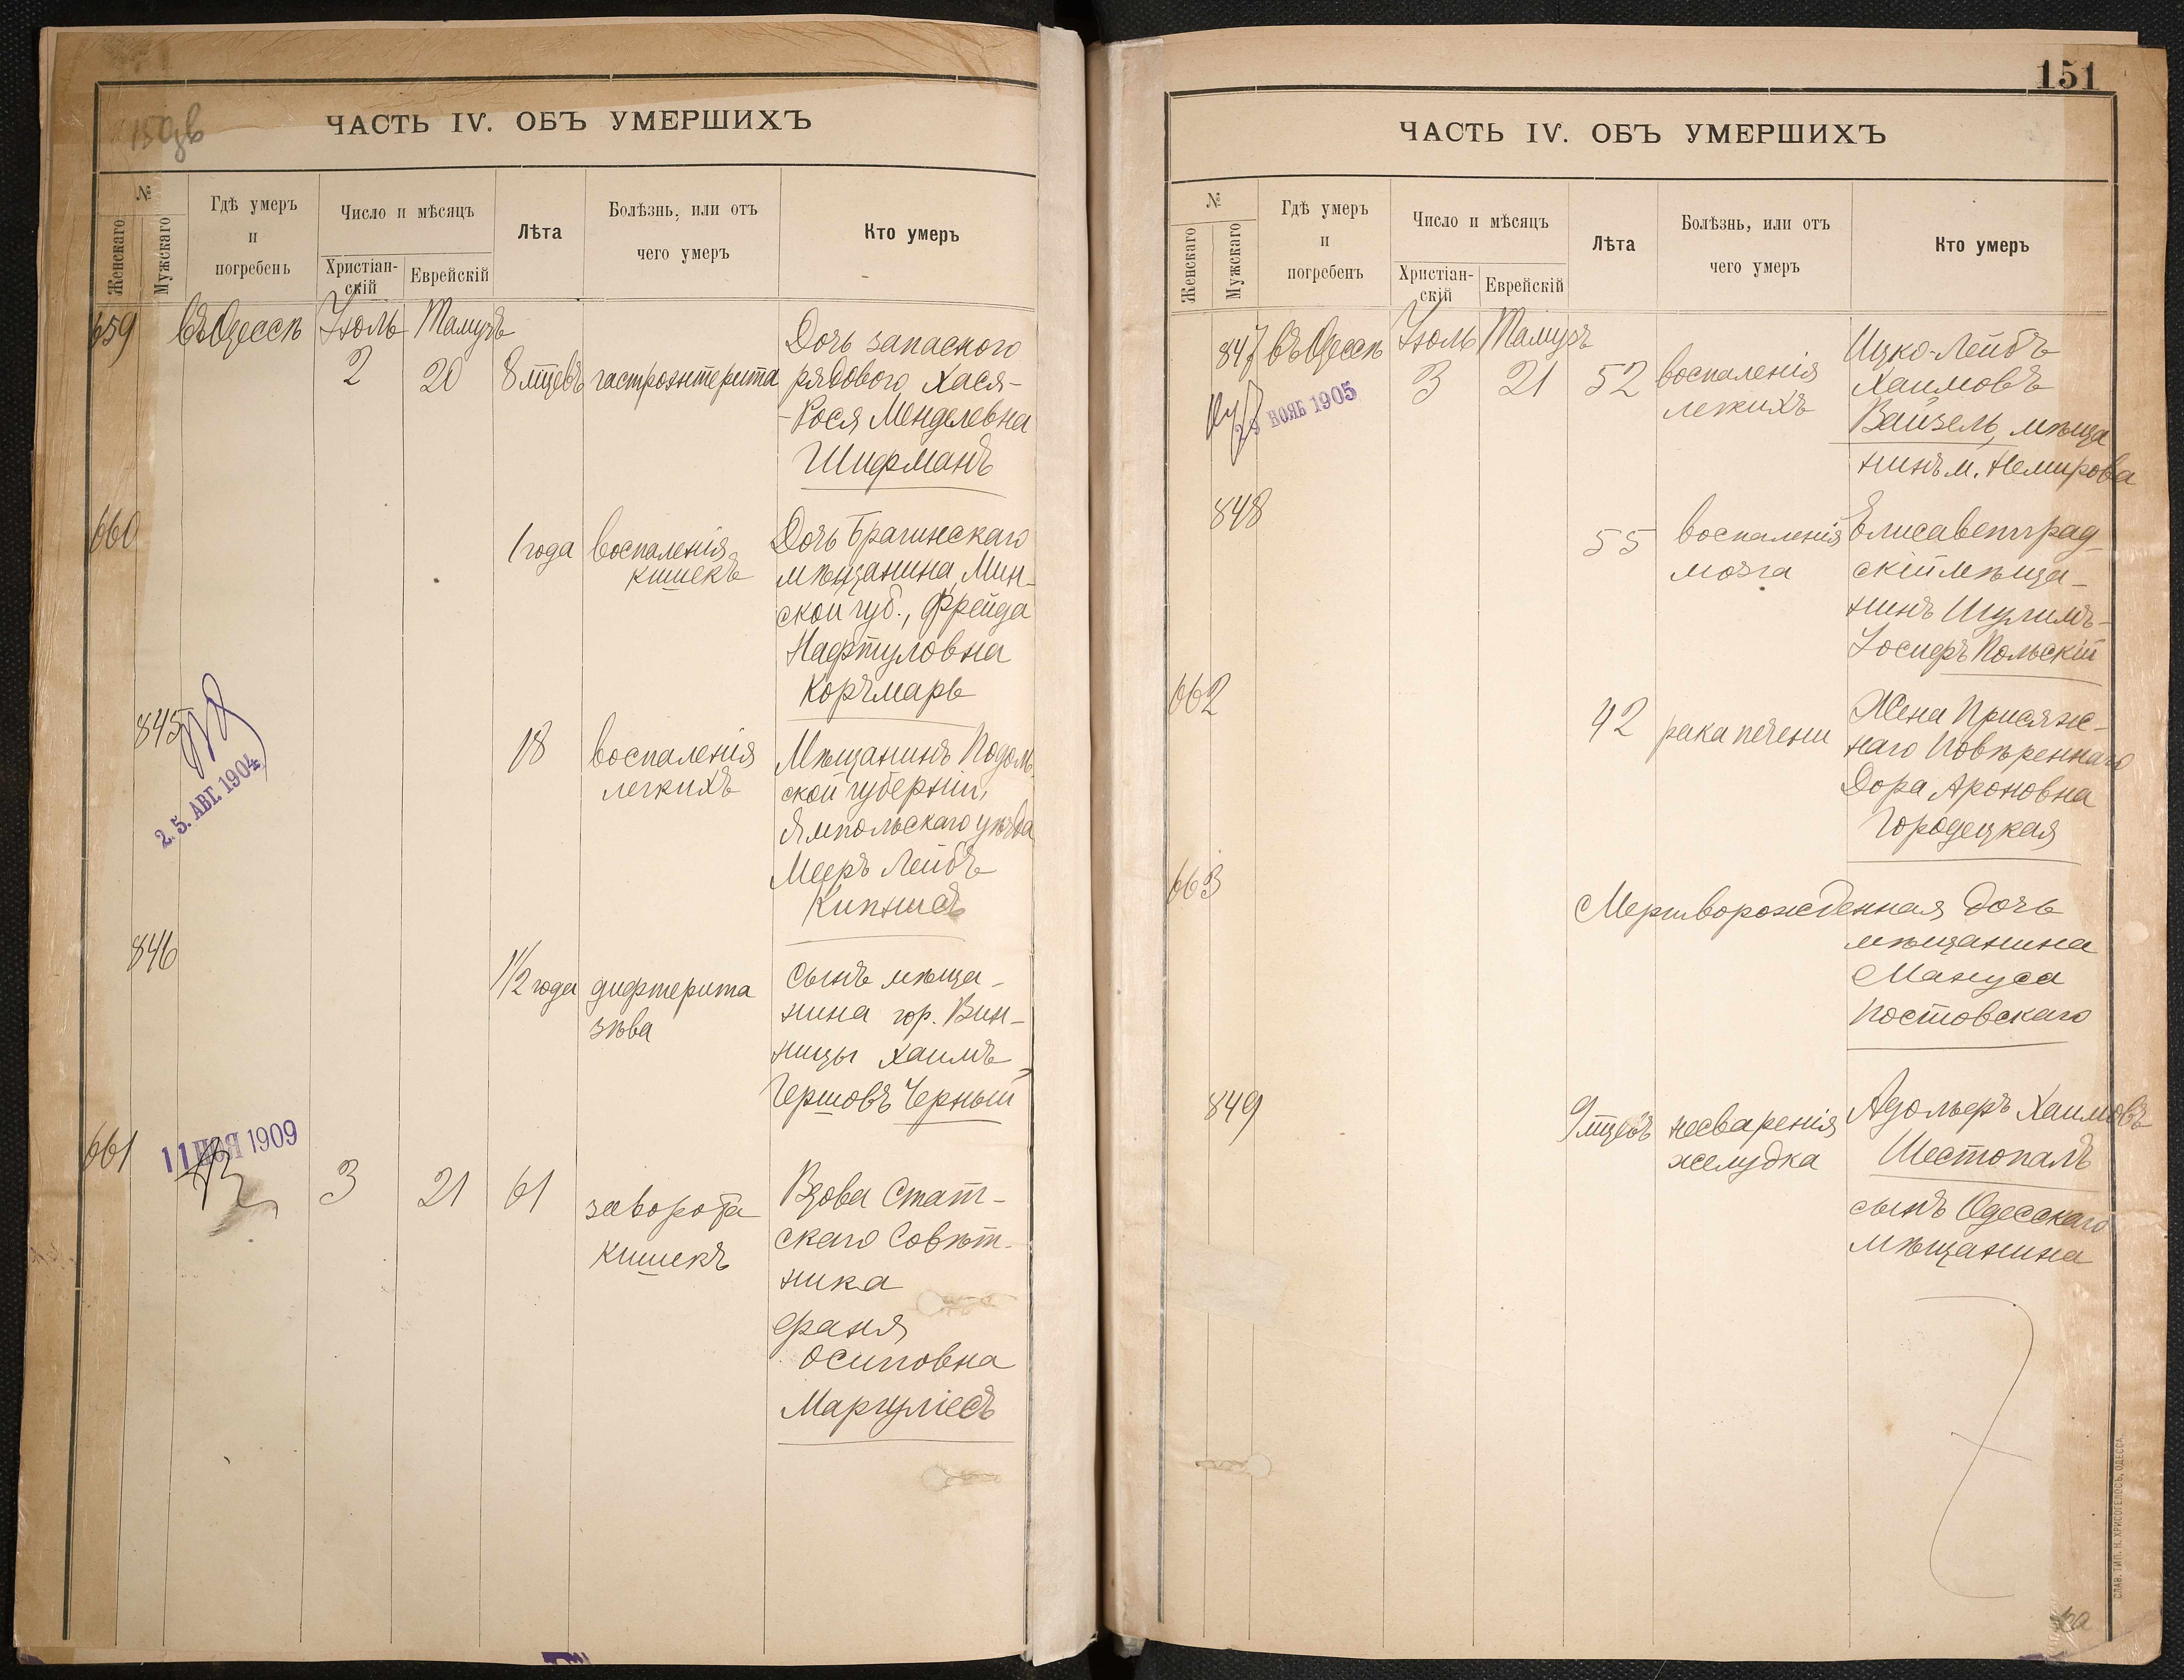 150об
ЧАСТЬ IV. ОБЪ УМЕРШИХЪ
№
Женскаго
Мужскаго
Гдѣ умеръ
и
погребенъ
Число и мѣсяцъ
Христіан-
скій
Еврейскій
Лѣта
Болѣзнь, или отъ
чего умеръ
Кто умеръ
659 въ Одессѣ Іюль Тамузъ
2 20 8 мцевъ гастроэнтерита
Дочь запасного
рядового Хася-
-Рося Менделевна
Шифманъ
660
1 года воспаленія
кишекъ
Дочь Брагинскаго
мѣщанина, Мин-
ской губ., Фрейда
Нафтуловна
Корчмарь
845
25. АВГ. 1904
18 воспаленія
легкихъ
Мѣщанинъ Подоль
ской губерніи,
Ямпольскаго уѣзда
Мееръ Лейбъ
Кипнисъ
846
1½ года дифтерита
зѣва
Сынъ мѣща-
нина гор. Вин-
ницы Хаимъ
Гершовъ Черный
661
11 НОЯ 1909
3 21 61 заворота
кишекъ
Вдова Стат-
скаго Совѣт-
ника
Фаня
Осиповна
Маргуліесъ
151
ЧАСТЬ IV. ОБЪ УМЕРШИХЪ
№
Женскаго
Мужскаго
Гдѣ умеръ
и
погребенъ
Число и мѣсяцъ
Христіан-
скій
Еврейскій
Лѣта
Болѣзнь, или отъ
чего умеръ
Кто умеръ
847 въ Одессѣ Іюль Тамузъ
29 НОЯБ 1905
3 21 52 воспаленія
легкихъ
Ицко-Лейбъ
Хаимовъ
Вайзель, мѣща
нинъ м. Немирова
848
55 воспаленія
мозга
Елисаветград-
скій мѣща-
нинъ Шулимъ-
Іосифъ Польскій
662
42 рака печени
Жена Присяж-
наго Повѣреннаго
Дора Ароновна
Городецкая
663
Мертворожденная дочь
мѣщанина
Мануса
Постовскаго
849
9 мцевъ несваренія
желудка
Адольфъ Хаимовъ
Шестопалъ
сынъ Одесскаго
мѣщанина
СЛАВ. ТИП. Н. ХРИСОГЕЛОСЪ, ОДЕССА.